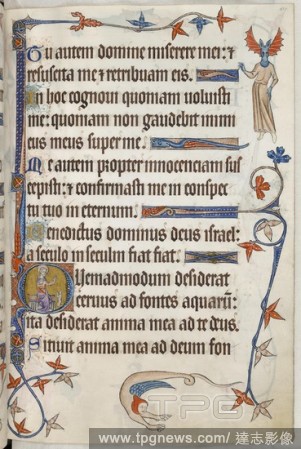 Tu autem domine miserere mei: et
resuscita me et retribuam eis.
In hoc cognoui quoniam uoluisti
me: quoniam non gaudebit inimi
cus meus super me.
Me autem propter innocenciam sus
cepisti: et confirmasti me in conspec
tu tuo in eternum.
Benedictus dominus deus israel:
a seculo in seculm fiat fiat.
Quemadmodum desiderat
ceruus ad fontes aquarū:
ita desiderat anima mea ad te deus.
Sitiuit anima mea ad deum fon
TPG
www.tpgnews.com/ 達志影像